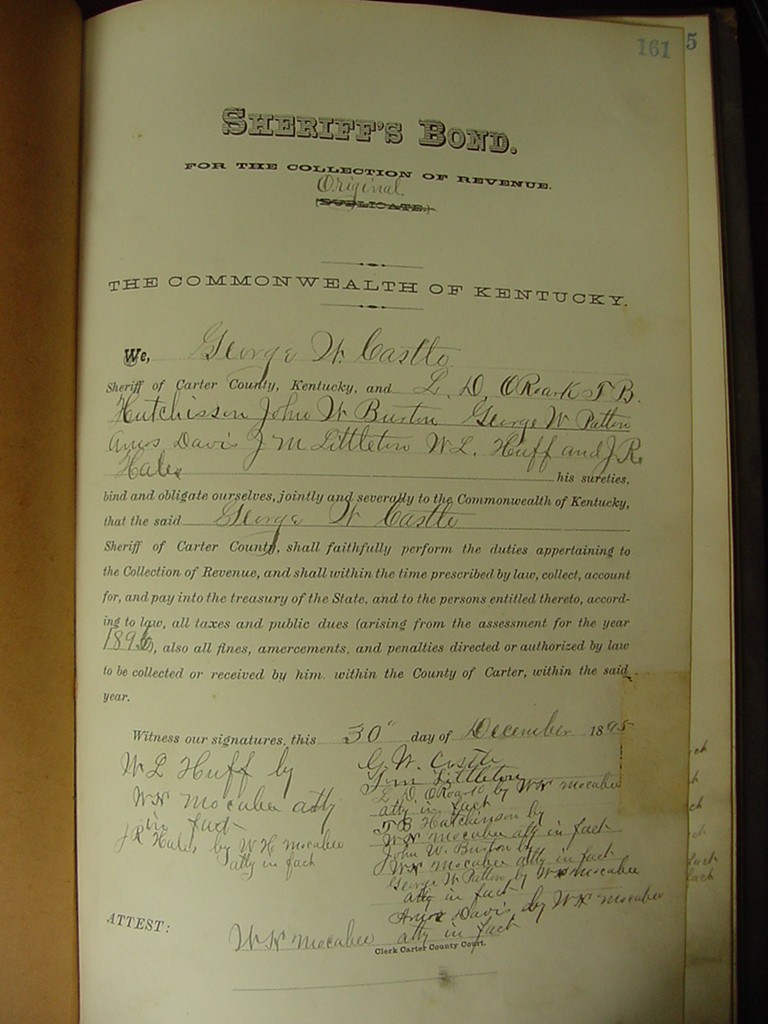 161 5
SHERIFF'S BOND.
FOR THE COLLECTION OF REVENUE.
Original.
(DUPLICATE.)
THE COMMONWEALTH OF KENTUCKY.
We, George W. Castle
Sheriff of Carter County, Kentucky, and L. D. ORoark T B.
Hutchisson John W Burton George W Patton
Amos Davis J M Littleton W L. Huff and J. R.
Hales his sureties,
bind and obligate ourselves, jointly and severally to the Commonwealth of Kentucky,
that the said George W Castle
Sheriff of Carter County, shall faithfully perform the duties appertaining to
the Collection of Revenue, and shall within the time prescribed by law, collect, account
for, and pay into the treasury of the State, and to the persons entitled thereto, accord-
ing to law, all taxes and public dues (arising from the assessment for the year
1896), also all fines, amercements, and penalties directed or authorized by law
to be collected or received by him, within the County of Carter, within the said
year.
Witness our signatures, this 30" day of December 1895
G. W. Castle
J. M Littleton
L. D. ORoark by W H mocabee
atty in fact
T B Hutchinson by
W H mocabee atty in fact
John W. Burton by
W H mocabee atty in fact
George W Patton by W H mocabee
atty in fact
Amos Davis by W H mocabee
atty in fact
W L Huff by
W H mocabee atty
in fact
J R Hales by W H mocabee
atty in fact
ATTEST:
W H mocabee
Clerk Carter County Court.